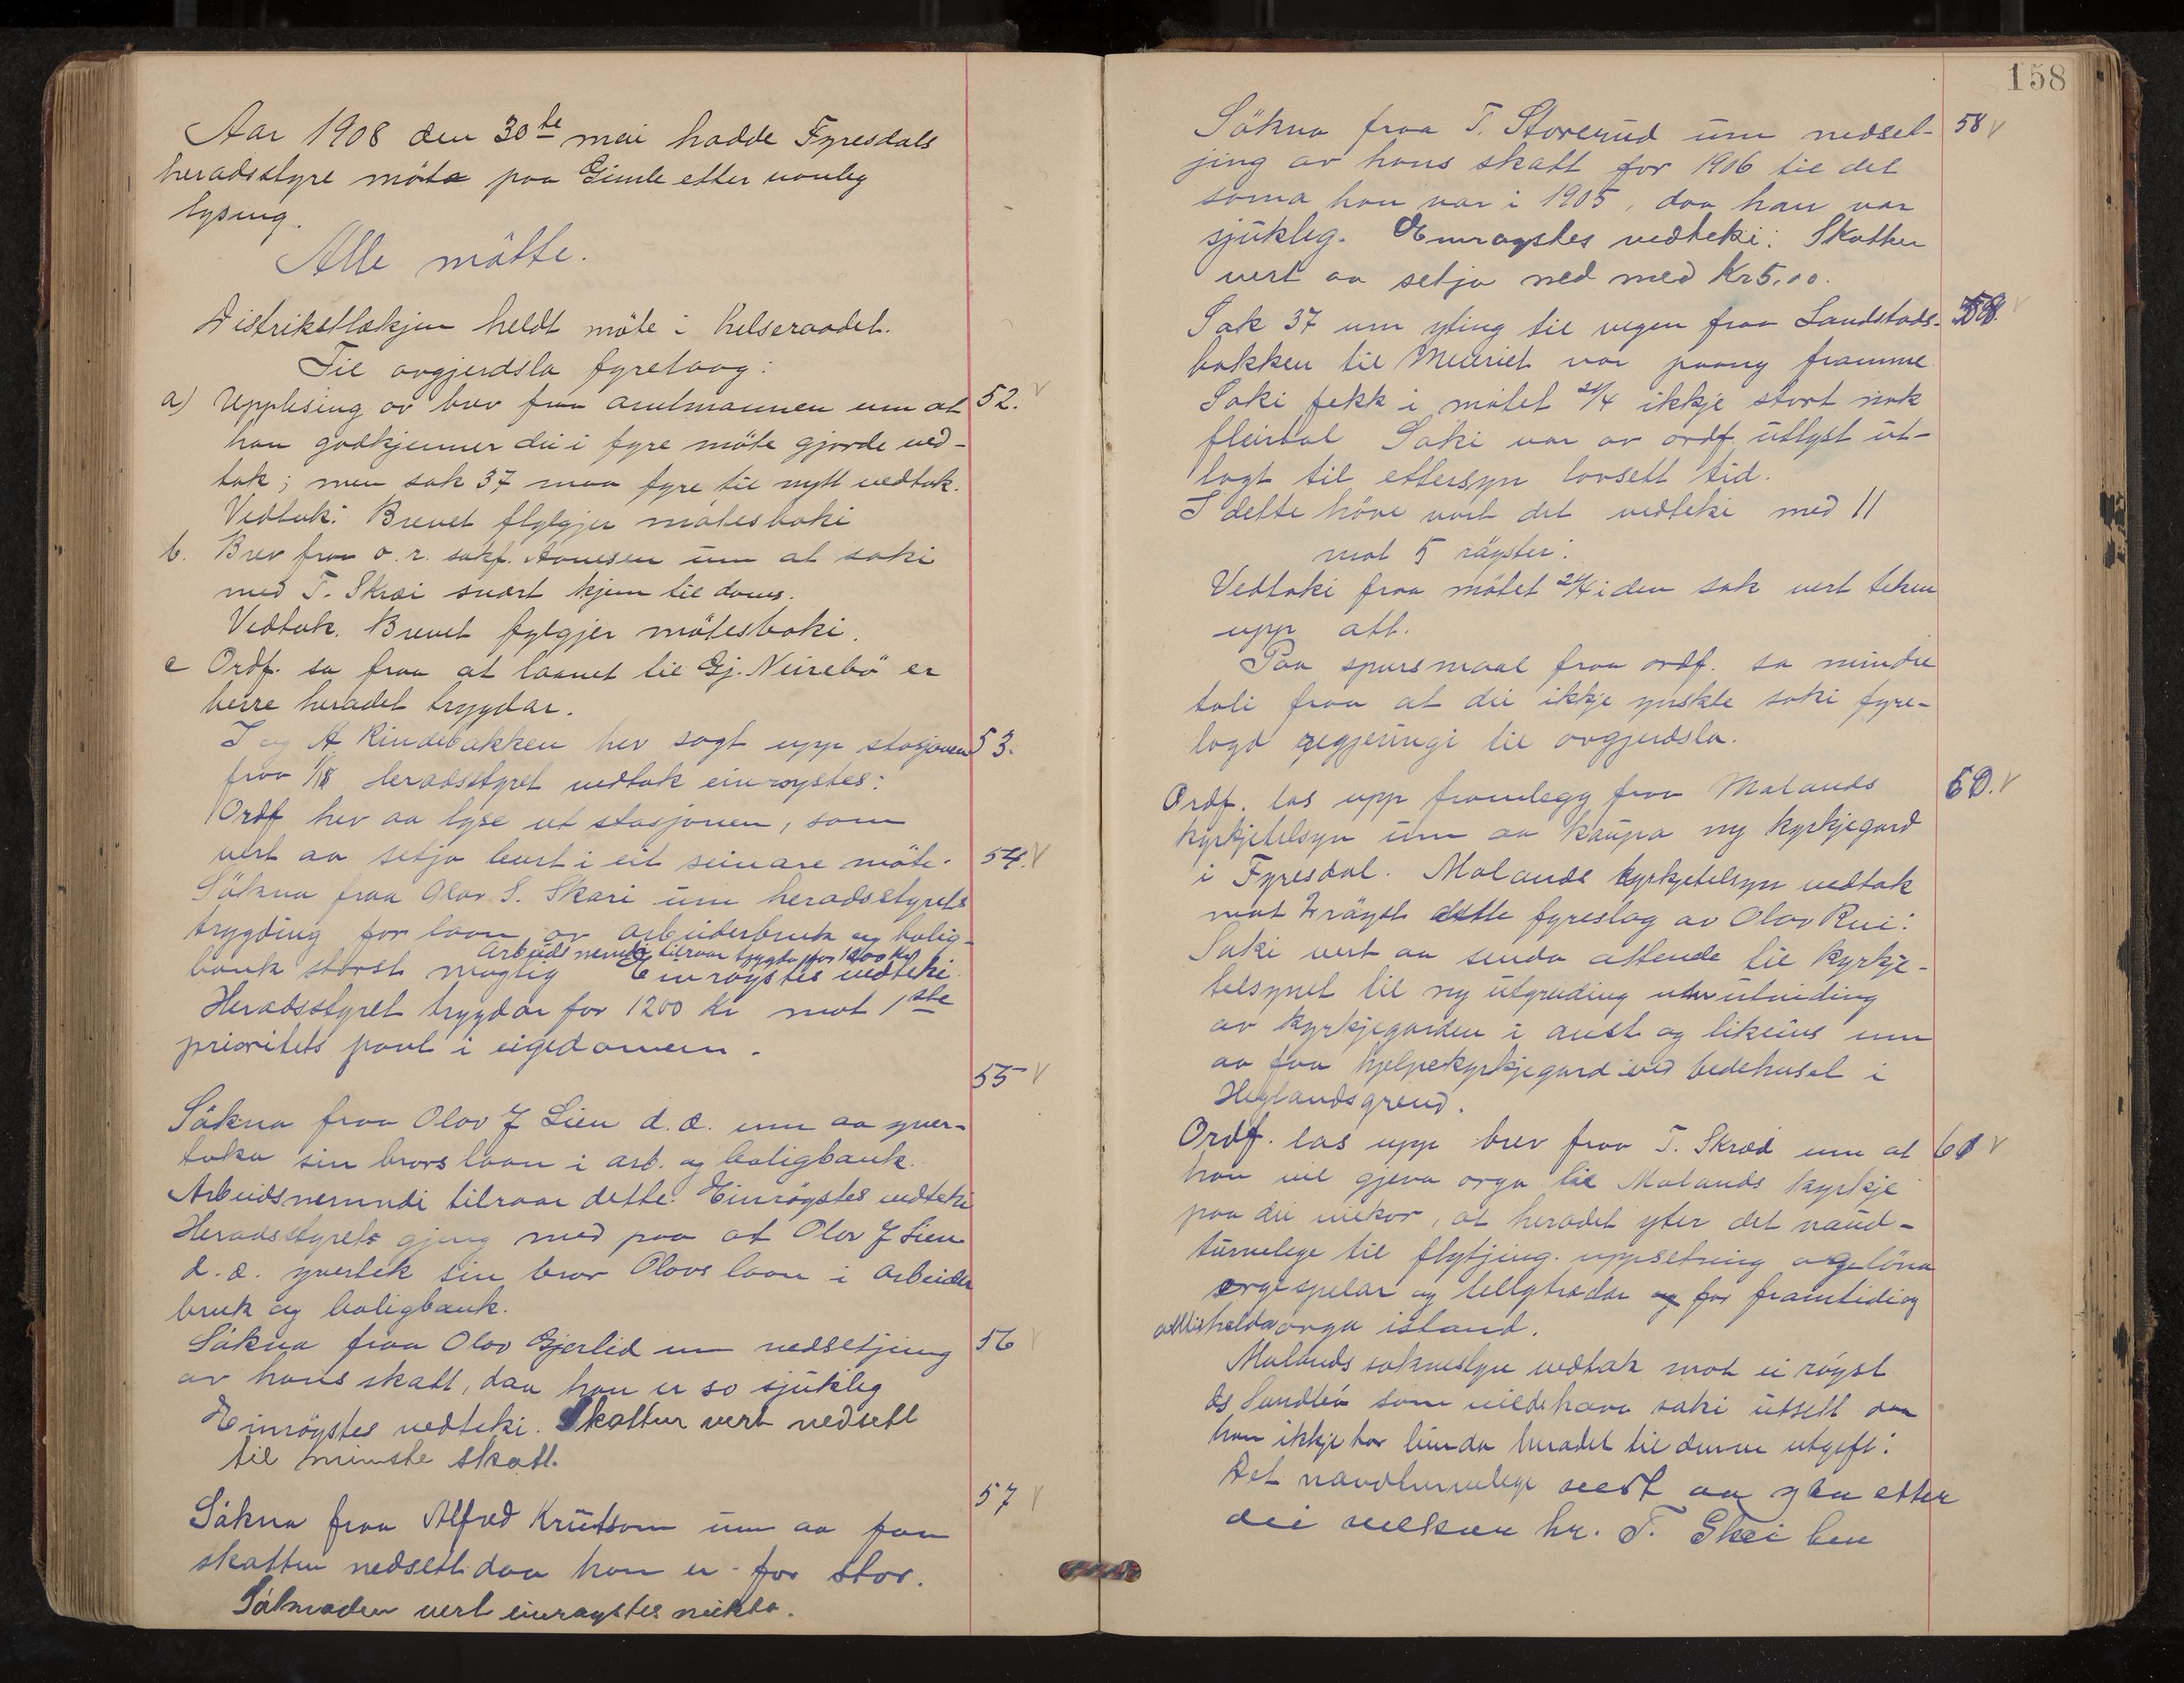 Aar 1908 den 30te mai hadde Fyresdals
heradsstyre möte paa Gimle etter vanleg
lysing.
Alle mötte.
Distriktslækjen heldt möte i helseraadet.
Til avgjerdsla fyrelaag:
a) Upplesing av brev fraa amtmannen um at 52.
han godkjenner dei i fyre möte gjorde ved-
tak; men sak 37 maa fyre til nytt vedtak.
Vedtak: Brevet fylgjer mötesboki
b. Brev fraa o.r. sakf. Aanesen um at saki
med T. Skræi snart kjem til doms.
Vedtak. Brevet fylgjer mötesboki.
c Ordf. sa fraa at laanet til Gj. Neirebö er
berre heradet tryggdar.
I og A. Rindebakken hev sagt upp stasjonen 53.
fraa 1/8 Heradsstyret vedtok einroystes:
Ordf hev aa lyse ut stasjonen, som
vert aa setja burt i eit seinare möte. 54.
Sökna fraa Olav S. Skari um heradsstyrets
trygding for laan av arbeiderbruk og bolig-
Arbeidsnemndi tilraar trygda for 1200 kr
bank störst mogleg Einröystes vedteki.
Heradsstyret tryggdar for 1200 kr mot 1ste
prioritets pant i eigedomen.
55
Sökna fraa Olav J Lien d.æ. um aa yver-
taka sin brors laan i arb. og boligbank.
Arbeidsnemndi tilraar dette. Einröystes vedteki
Heradsstyret gjeng med paa at Olav J Lien
d.æ. yvertek sin bror Olavs laan i arbeider
bruk og boligbank.
Sökna fraa Olav Gjerlid um nedsetjing 56
av hans skatt, daa han er so sjukleg
Einröystes vedteki. Skatten vert nedsett
til minste skatt.
57
Sökna fraa Alfred Knutson um aa faa
skatten nedsett daa han er for stor.
Söknaden vert einröystes neikta.
158
Sökna fraa T. Storerud um nedset- 58
jing av hans skatt for 1906 til det
soma han var i 1905, daa han var
sjukleg. Einröystes vedteki: Skatten
vert aa setja ned med Kr 5,00.
Sak 37 um yting til vegen fraa Landstads- 59.
bakken til Meieriet var paany framme
Saki fekk i mötet 24/4 ikkje stort nok
fleirtal Saki var av ordf. utlyst ut-
lagt til ettersyn lovsett tid.
I dette höve vart det vedteki med 11
mot 5 röyster:
Vedtaki fraa mötet 24/4 i den sak vert teken
upp att.
Paa spursmaal fraa ordf. sa mindre
tali fraa at dei ikkje ynskte saki fyre-
lagd regjeringi til avgjerdsla.
Ordf. las upp framlegg fraa Molands 60.
kyrkjetilsyn um aa kaupa ny kyrkjegard
i Fyresdal. Molands kyrkjetilsyn vedtok
mot 2 röyst dette fyreslag av Olav Rui:
Saki vert aa senda attende til kyrkje-
tilsynet til ny utgreiding um utviding
av kyrkjegarden i aust og likeins um
aa faa hjelpekyrkjegard ved bedehuset i
Heglandsgrend.
Ordf. las upp brev fraa T. Skræi um at 61
han vil gjeva orga til Molands kyrkje
paa dei vilkor, at heradet yter det naud-
turvelege til flytjing. uppsetning og löna
orgespelar og belgtrødar og for framtidi og
alltid halda orga istand.
Molands soknestyre vedtok mot ei röyst
Os Sundtöi som vilde hava saki utsett daa
han ikkje tor binda heradet til denne utgift:
Det naudturvelege vert aa yta etter
dei vilkaar hr. T. Skræi hev